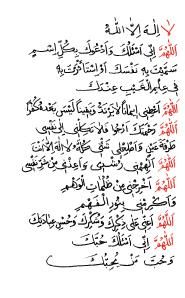 لا إله إلا الله
اللهم إني أسألك وأدعوك بكل اسم
سميت به نفسك أو استأثرت به
في علم الغيب عندك
اللهم أعطني إيمانا لا يرتد ويقينا ليس بعده كفر
اللهم رحمتك أرجو فلا تكلني إلى نفسي
طرفة عين وأصلح لي شأني كله لا إله إلا أنت
اللهم ألهمني رشدي وأعذني من شر نفسي
اللهم أخرجني من ظلمات الوهم
وأكرمني بنور الفهم
اللهم أعني على ذكرك وشكرك وحسن عبادتك
اللهم إني أسألك حبك
وحب من يحبك